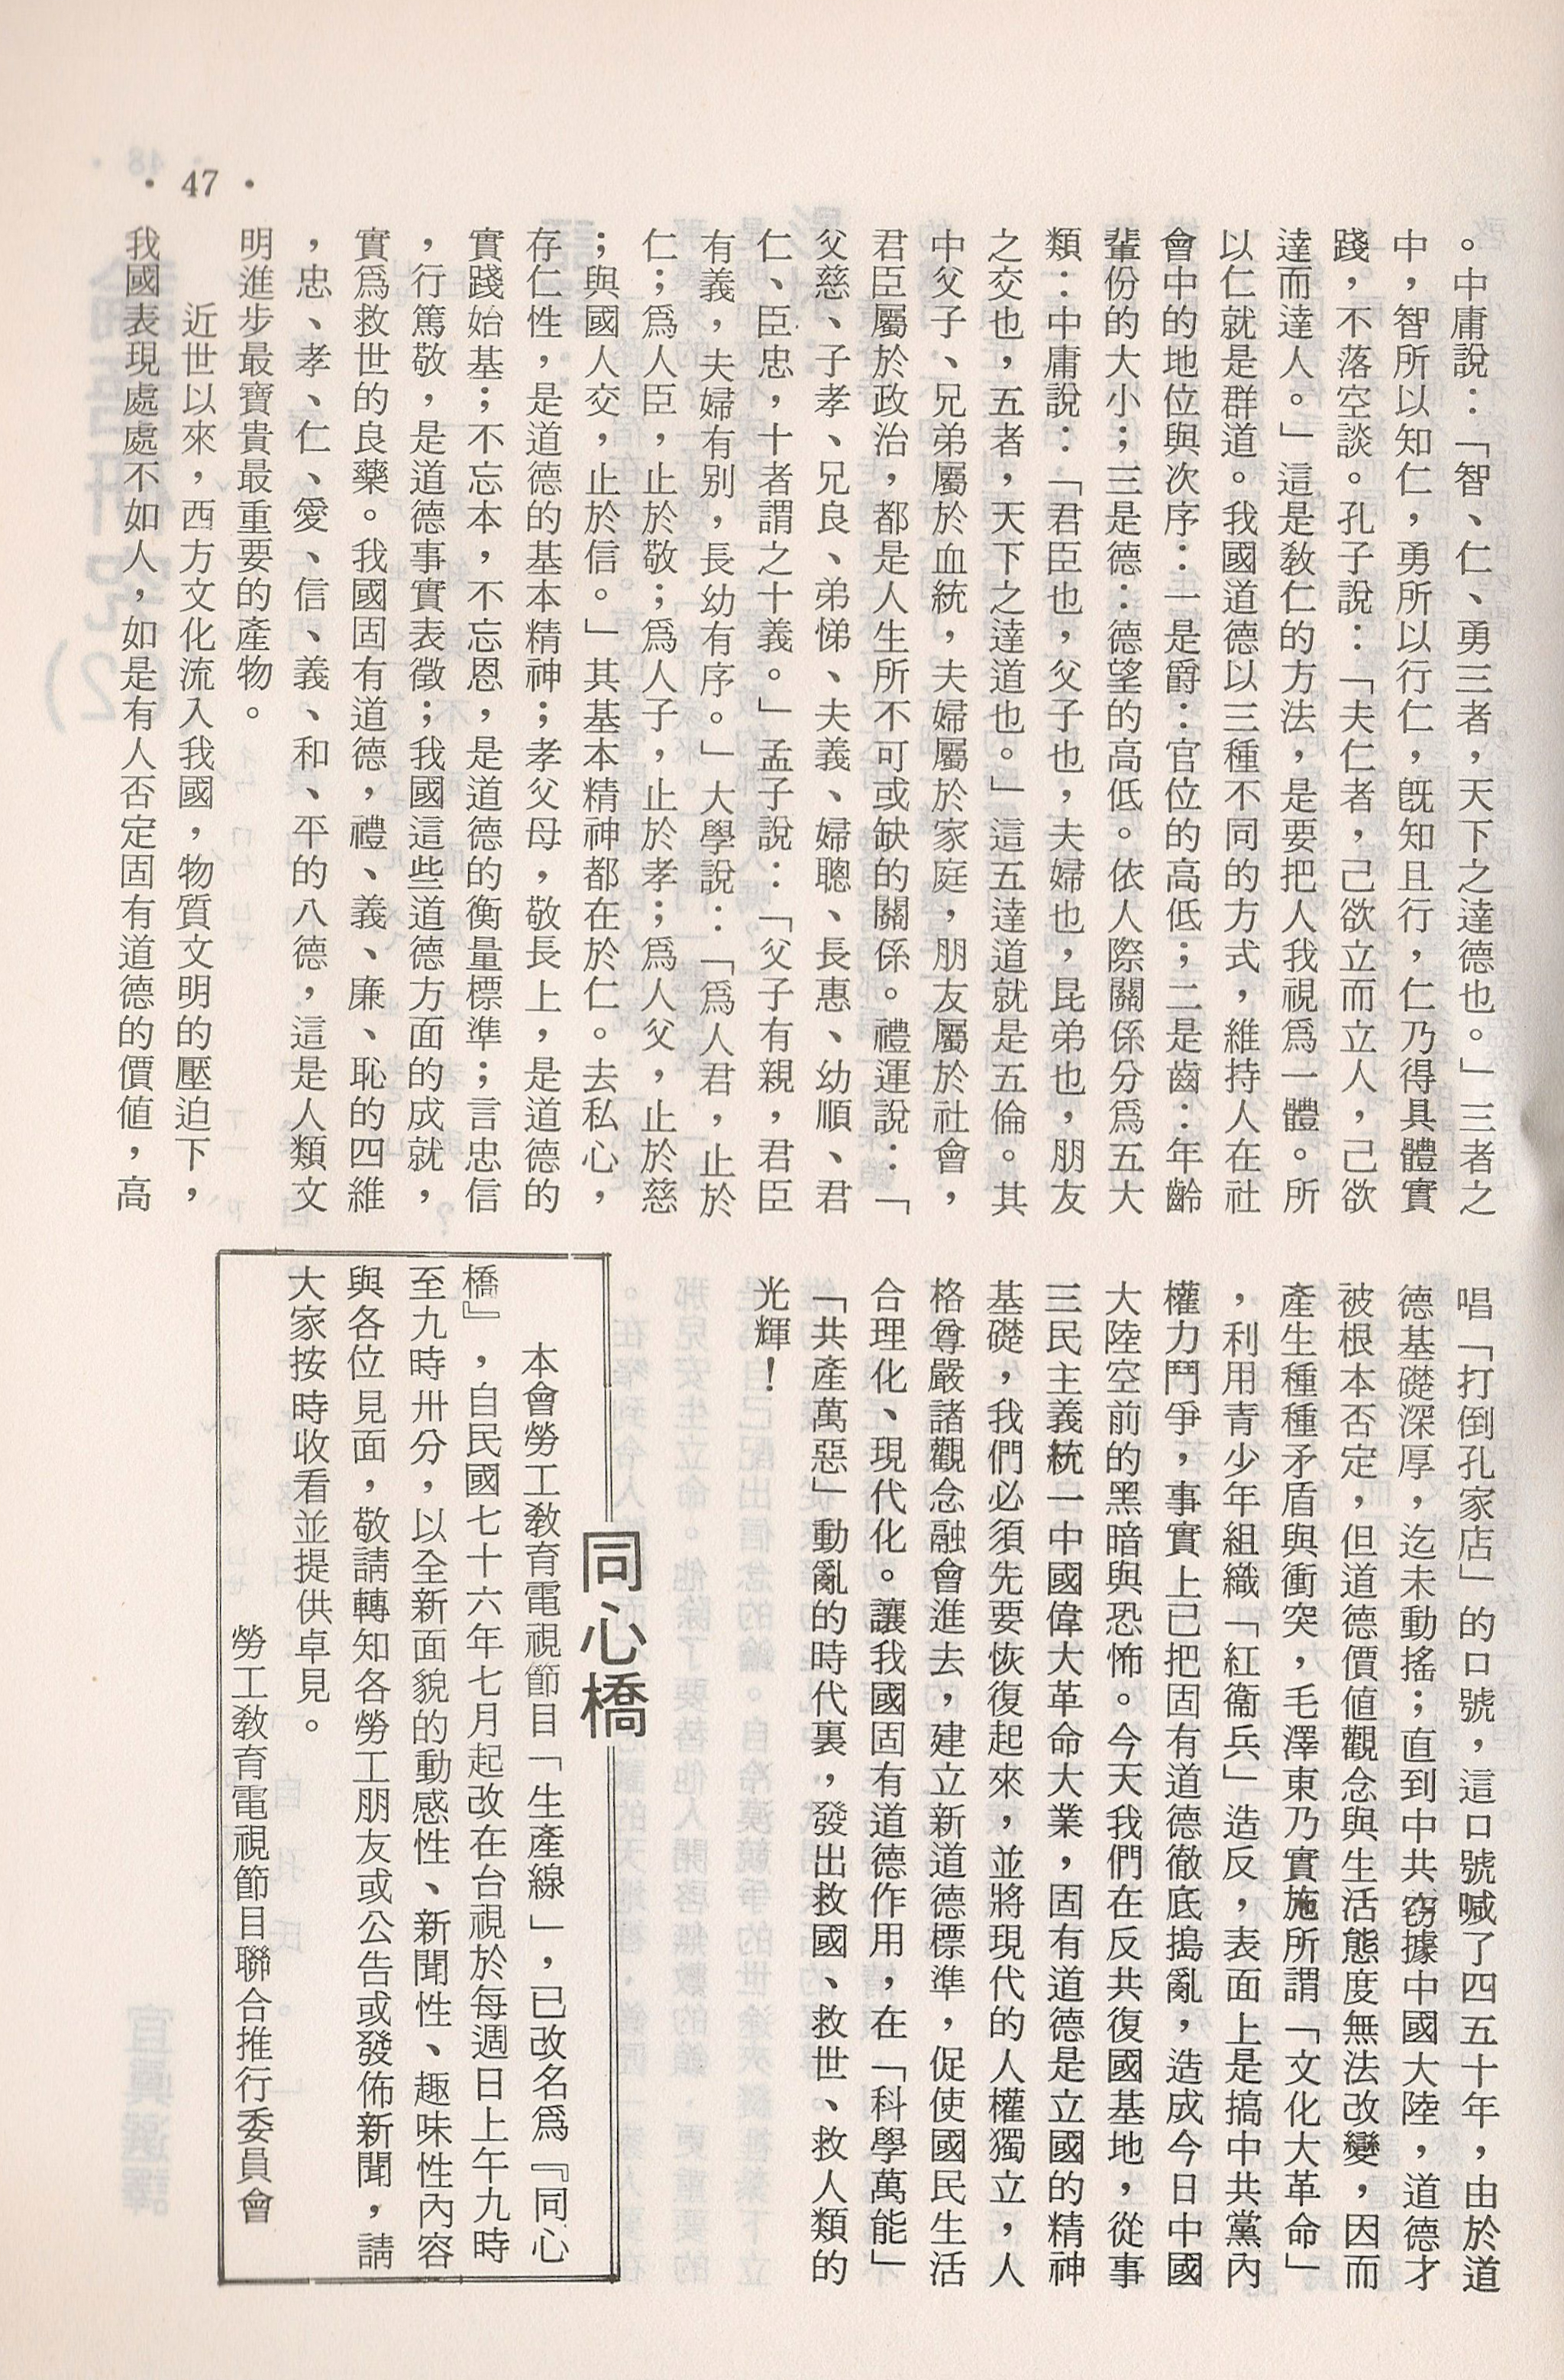 • 47 •
。中庸說：「智、仁、勇三者，天下之達德也。」三者之
中，智所以知仁，勇所以行仁，旣知且行，仁乃得具體實
踐，不落空談。孔子說：「夫仁者，己欲立而立人，己欲
達而達人。」這是敎仁的方法，是要把人我視爲一體。所
以仁就是群道。我國道德以三種不同的方式，維持人在社
會中的地位與次序：一是爵：官位的高低；二是齒：年齡
輩份的大小；三是德：德望的高低。依人際關係分爲五大
類：中庸說：「君臣也，父子也，夫婦也，昆弟也，朋友
之交也，五者，天下之達道也。」這五達道就是五倫。其
中父子、兄弟屬於血統，夫婦屬於家庭，朋友屬於社會，
君臣屬於政治，都是人生所不可或缺的關係。禮運說：「
父慈、子孝、兄良、弟悌、夫義、婦聰、長惠、幼順、君
仁、臣忠，十者謂之十義。」孟子說：「父子有親，君臣
有義，夫婦有別，長幼有序。」大學說：「爲人君，止於
仁；爲人臣，止於敬；爲人子，止於孝；爲人父，止於慈
；與國人交，止於信。」其基本精神都在於仁。去私心，
存仁性，是道德的基本精神；孝父母，敬長上，是道德的
實踐始基；不忘本，不忘恩，是道德的衡量標準；言忠信
，行篤敬，是道德事實表徵；我國這些道德方面的成就，
實爲救世的良藥。我國固有道德，禮、義、廉、恥的四維
，忠、孝、仁、愛、信、義、和、平的八德，這是人類文
明進步最寶貴最重要的產物。
近世以來，西方文化流入我國，物質文明的壓迫下，
我國表現處處不如人，如是有人否定固有道德的價值，高
唱「打倒孔家店」的口號，這口號喊了四五十年，由於道
德基礎深厚，迄未動搖；直到中共竊據中國大陸，道德才
被根本否定，但道德價值觀念與生活態度無法改變，因而
產生種種矛盾與衝突，毛澤東乃實施所謂「文化大革命」
，利用青少年組織「紅衞兵」造反，表面上是搞中共黨內
權力鬥爭，事實上已把固有道德徹底搗亂，造成今日中國
大陸空前的黑暗與恐怖。今天我們在反共復國基地，從事
三民主義統一中國偉大革命大業，固有道德是立國的精神
基礎，我們必須先要恢復起來，並將現代的人權獨立，人
格尊嚴諸觀念融會進去，建立新道德標準，促使國民生活
合理化、現代化。讓我國固有道德作用，在「科學萬能」
「共產萬惡」動亂的時代裏，發出救國、救世、救人類的
光輝！
同心橋
本會勞工敎育電視節目「生產線」，已改名爲『同心
橋』，自民國七十六年七月起改在台視於每週日上午九時
至九時卅分，以全新面貌的動感性、新聞性、趣味性內容
與各位見面，敬請轉知各勞工朋友或公告或發佈新聞，請
大家按時收看並提供卓見。
勞工敎育電視節目聯合推行委員會